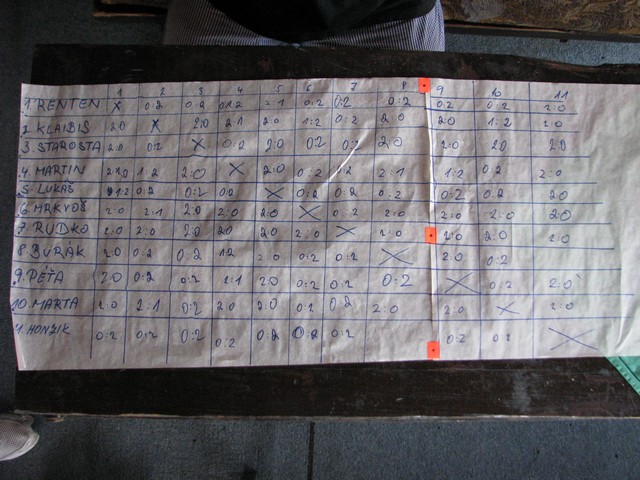 1 2 3 4 5 6 7 8 9 10 11
1. RENTEN X 0:2 0:2 0:2 0:2 0:2 0:2 0:2 0:2 2:0
2. KLAIBIS 2:0 X 2:0 2:1 2:0 1:2 0:2 2:0 2:0 1:2 2:0
3. STAROSTA 2:0 0:2 X 0:2 2:0 0:2 0:2 2:0 2:0 2:0 2:0
4. MARTIN 1:2 2:0 X 2:0 0:2 0:2 2:1 1:2 0:2 2:0
5. LUKÁŠ 1:2 0:2 0:2 0:2 X 0:2 0:2 0:2 0:2 0:2 2:0
6. MRKVOŠ 2:0 2:1 2:0 2:0 2:0 X 0:2 2:0 2:0 2:0 2:0
7. RUDKO 2:0 2:0 2:0 2:0 2:0 2:0 X 2:0 2:0 2:0 2:0
8. BURÁK 2:0 0:2 0:2 1:2 2:0 0:2 0:2 X 2:0 0:2
9. PÉŤA 2:0 0:2 0:2 2:1 2:0 0:2 0:2 0:2 X 0:2 2:0
10. MARTA 2:0 2:1 0:2 2:0 2:0 0:2 0:2 2:0 2:0 X 2:0
11. HONZIK 0:2 0:2 0:2 0:2 0:2 0:2 0:2 0:2 0:2 X